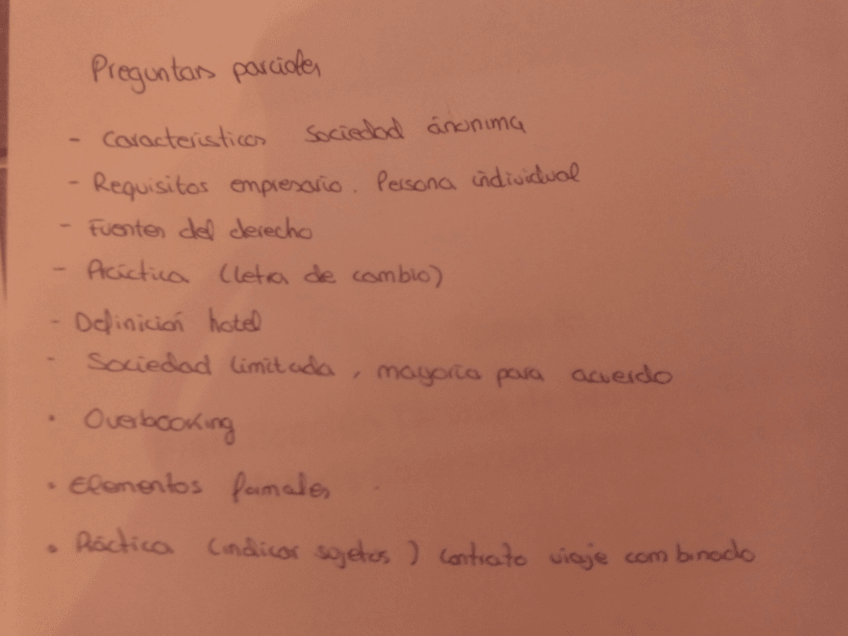 Preguntas parciales
- Características Sociedad ánonima
- Requisitos empresario. Persona individual
- Fuentes del derecho
- Práctica (letra de cambio)
- Definición hotel
- Sociedad limitada, mayoria para acuerdo
• Overbooking
• Elementos formales
• Práctica (indicar sujetos) contrato viaje combinado